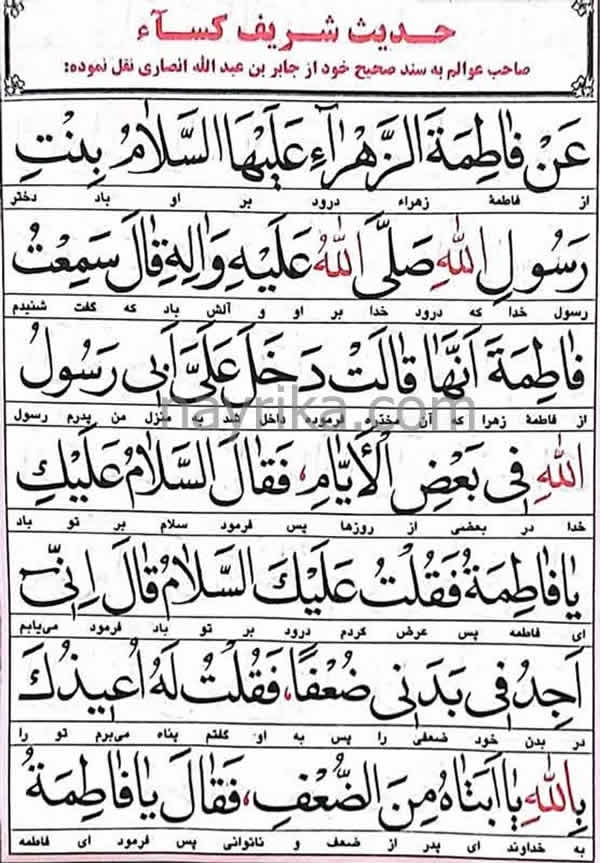 حدیث شریف کسآء
صاحب عوالم به سند صحیح خود از جابر بن عبد الله انصاری نقل نموده:
عَنْ فٰاطِمَةَ الزَّهْرٰآءِ عَلَيْهَا السَّلٰامُ بِنْتِ
از فاطمهٔ زهراء درود بر او باد دختر
رَسُولِ اللهِ صَلَّى اللهُ عَلَيْهِ وَاٰلِهِ قٰالَ سَمِعْتُ
رسول خدا که درود خدا بر او و آلش باد که گفت شنیدم
فٰاطِمَةَ اَنَّهٰا قٰالَتْ دَخَلَ عَلَىَّ اَبى رَسُولُ
از فاطمهٔ زهرا که آن مخدره فرموده داخل شد به منزل من پدرم رسول
nayrika.com
اللهِ فى بَعْضِ الْاَيّٰامِ، فَقٰالَ السَّلٰامُ عَلَيْكِ
خدا در بعضی از روزها پس فرمود سلام بر تو باد
يٰا فٰاطِمَةُ فَقُلْتُ عَلَيْكَ السَّلٰامُ قٰالَ اِنّى
ای فاطمه پس عرض کردم درود بر تو باد فرمود می‌یابم
اَجِدُ فى بَدَنى ضُعْفًا، فَقُلْتُ لَهُ اُعيذُكَ
در بدن خود ضعفی را پس به او گفتم پناه می‌برم تو را
بِاللهِ يٰا اَبَتٰاهُ مِنَ الضُّعْفِ، فَقٰالَ يٰا فٰاطِمَةُ
به خداوند ای پدر از ضعف و ناتوانی پس فرمود ای فاطمه